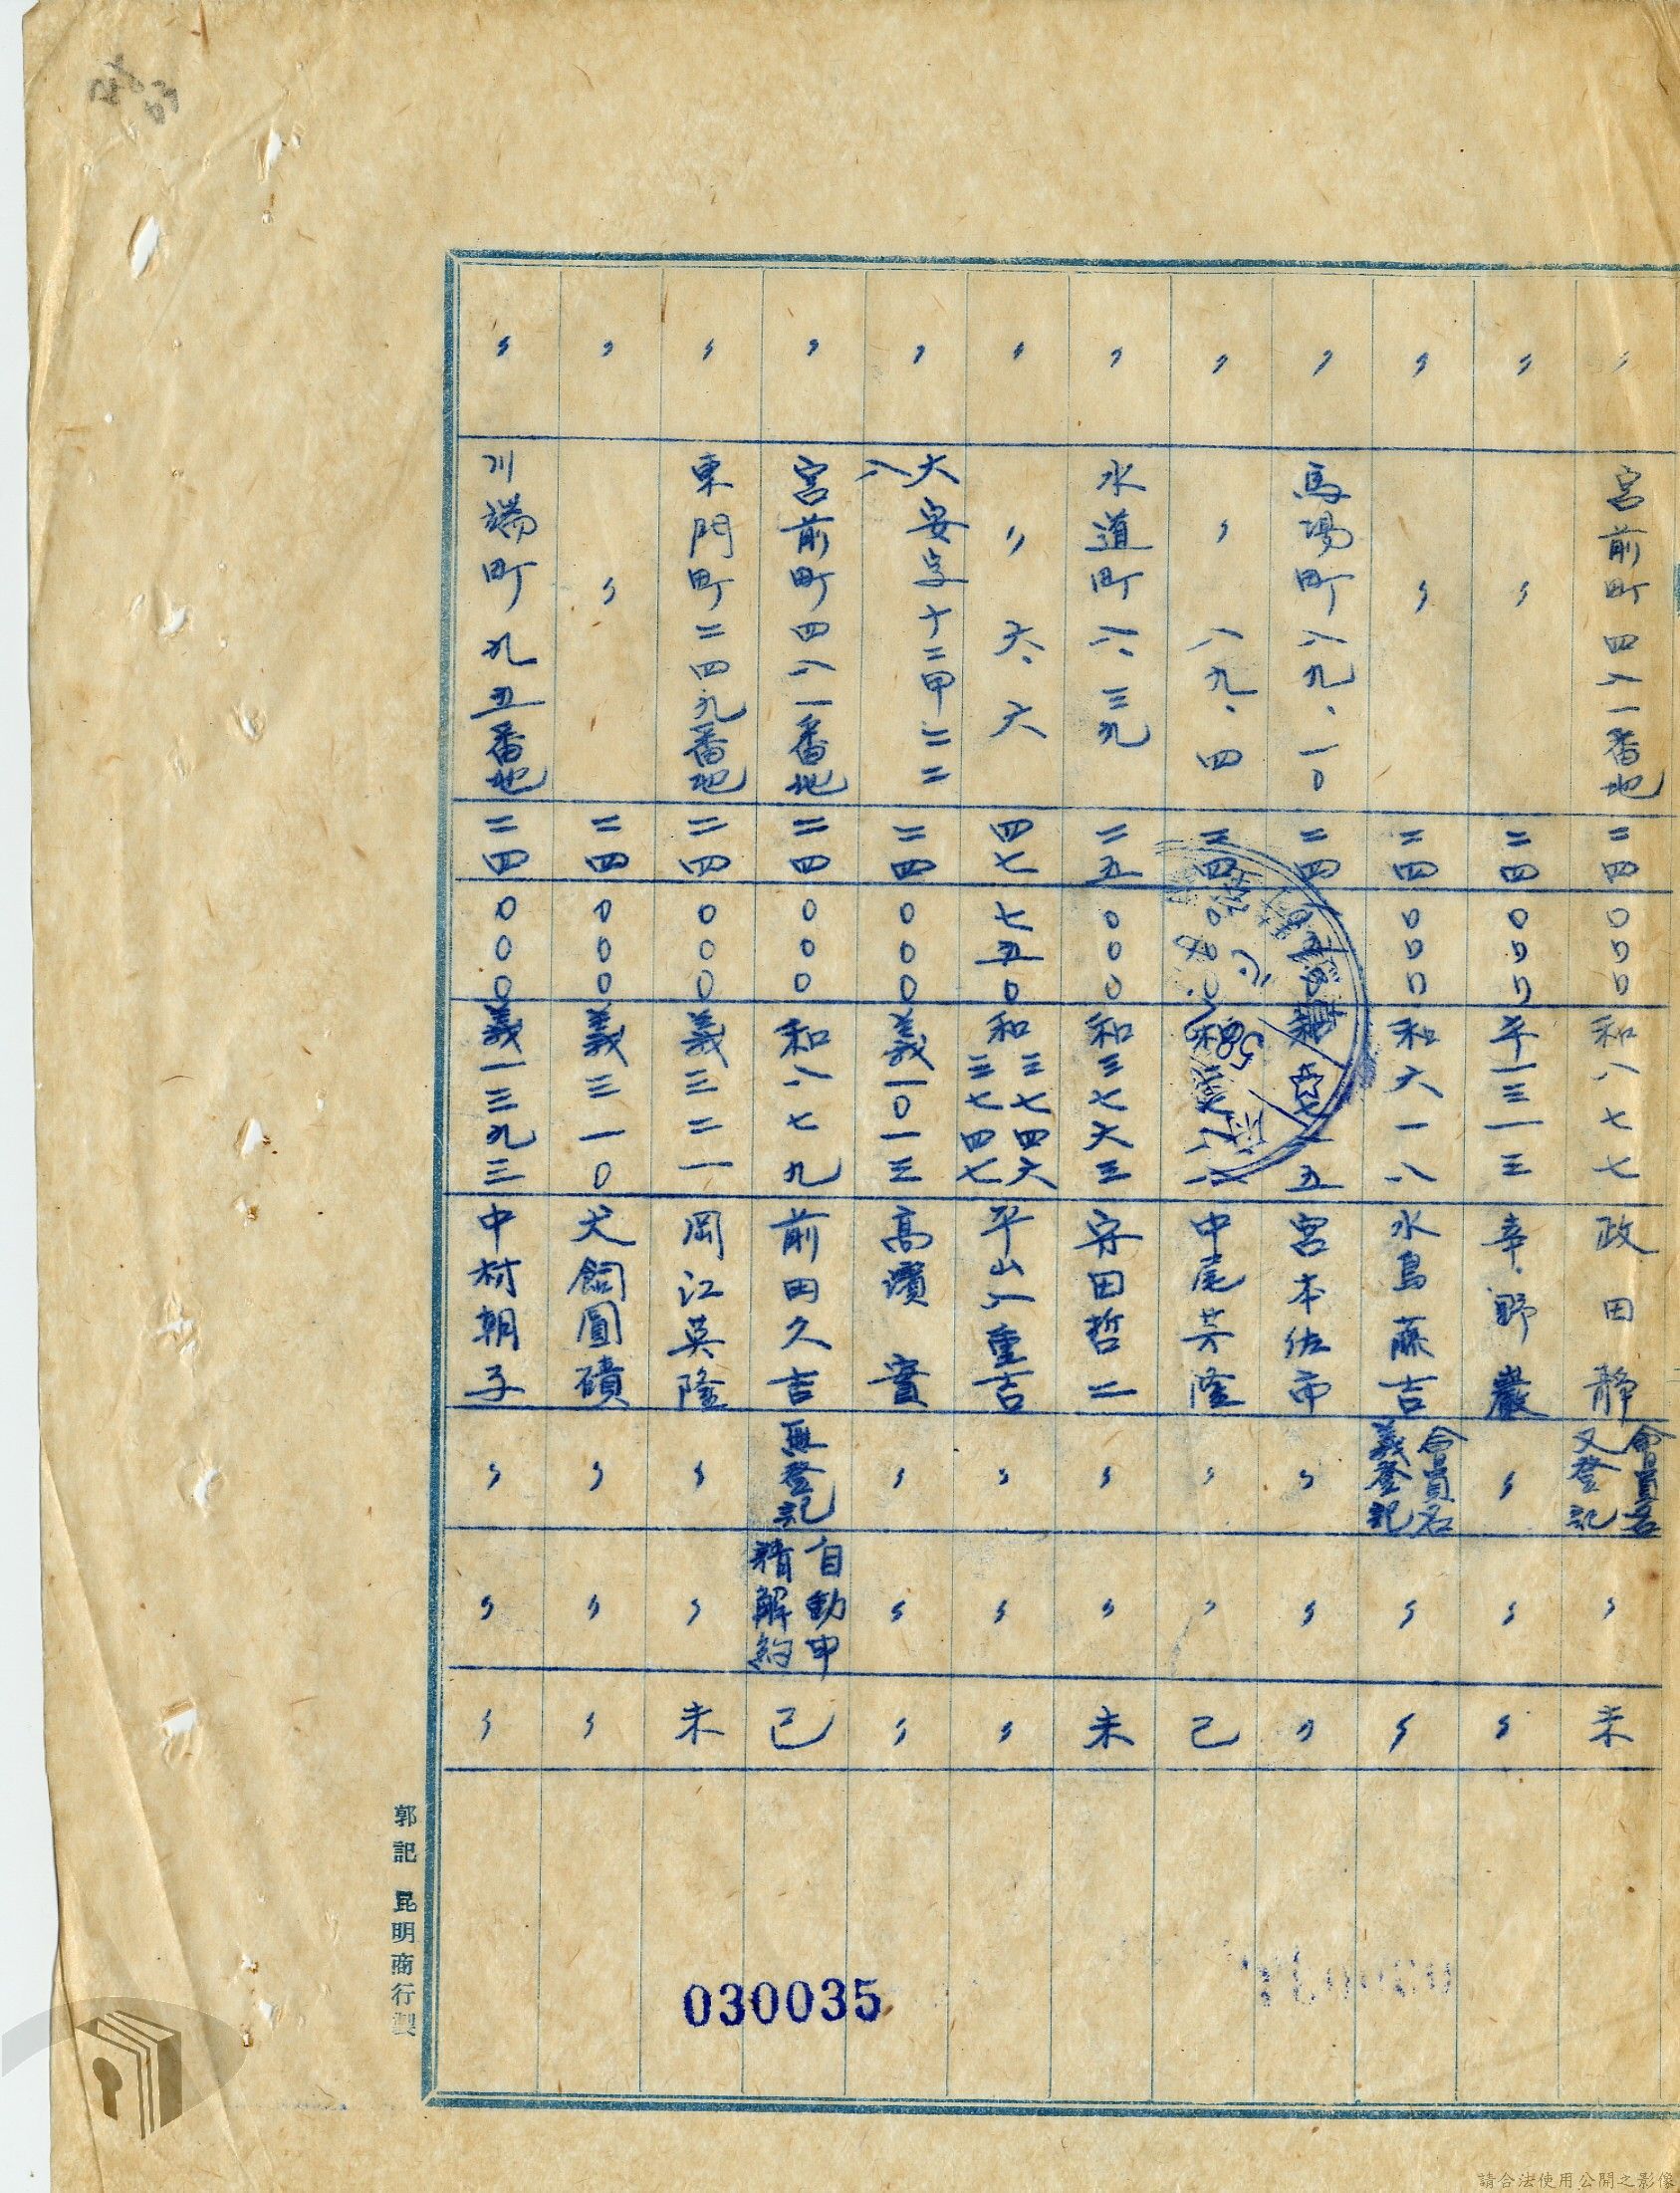 〃 宮前町四八一番地 二四 〇〇〇 和八七七 政田靜 會員名又登記 〃 未
〃 〃 二四 〇〇〇 平一三一三 幸野巖 〃 〃 〃
〃 〃 二四 〇〇〇 和六一八 水島藤吉 會員名義登記 〃 〃
〃 馬場町八九、一〇 二四 宮本佐市 〃 〃 〃
〃 〃八九、四 二四 中尾芳隆 〃 〃 已
〃 水道町六、三九 二五 〇〇〇 和三七六三 守田哲二 〃 〃 未
〃 〃六、六 四七 七五〇 和三七四六 三七四七 平山八重吉 〃 〃 〃
〃 大安字十二甲二二八 二四 〇〇〇 義一〇一三 高濱實 〃 〃 〃
〃 宮前町四八一番地 二四 〇〇〇 和八七九 前田久吉 無登記 自動申精解約 已
〃 東門町二四九番地 二四 〇〇〇 義三二一 岡江英隆 〃 〃 未
〃 〃 二四 〇〇〇 義三一〇 犬飼圓磧 〃 〃 〃
〃 川端町九五番地 二四 〇〇〇 義一三九三 中村朝子 〃 〃 〃
郭記 昆明商行製
030035
請合法使用公開之影像